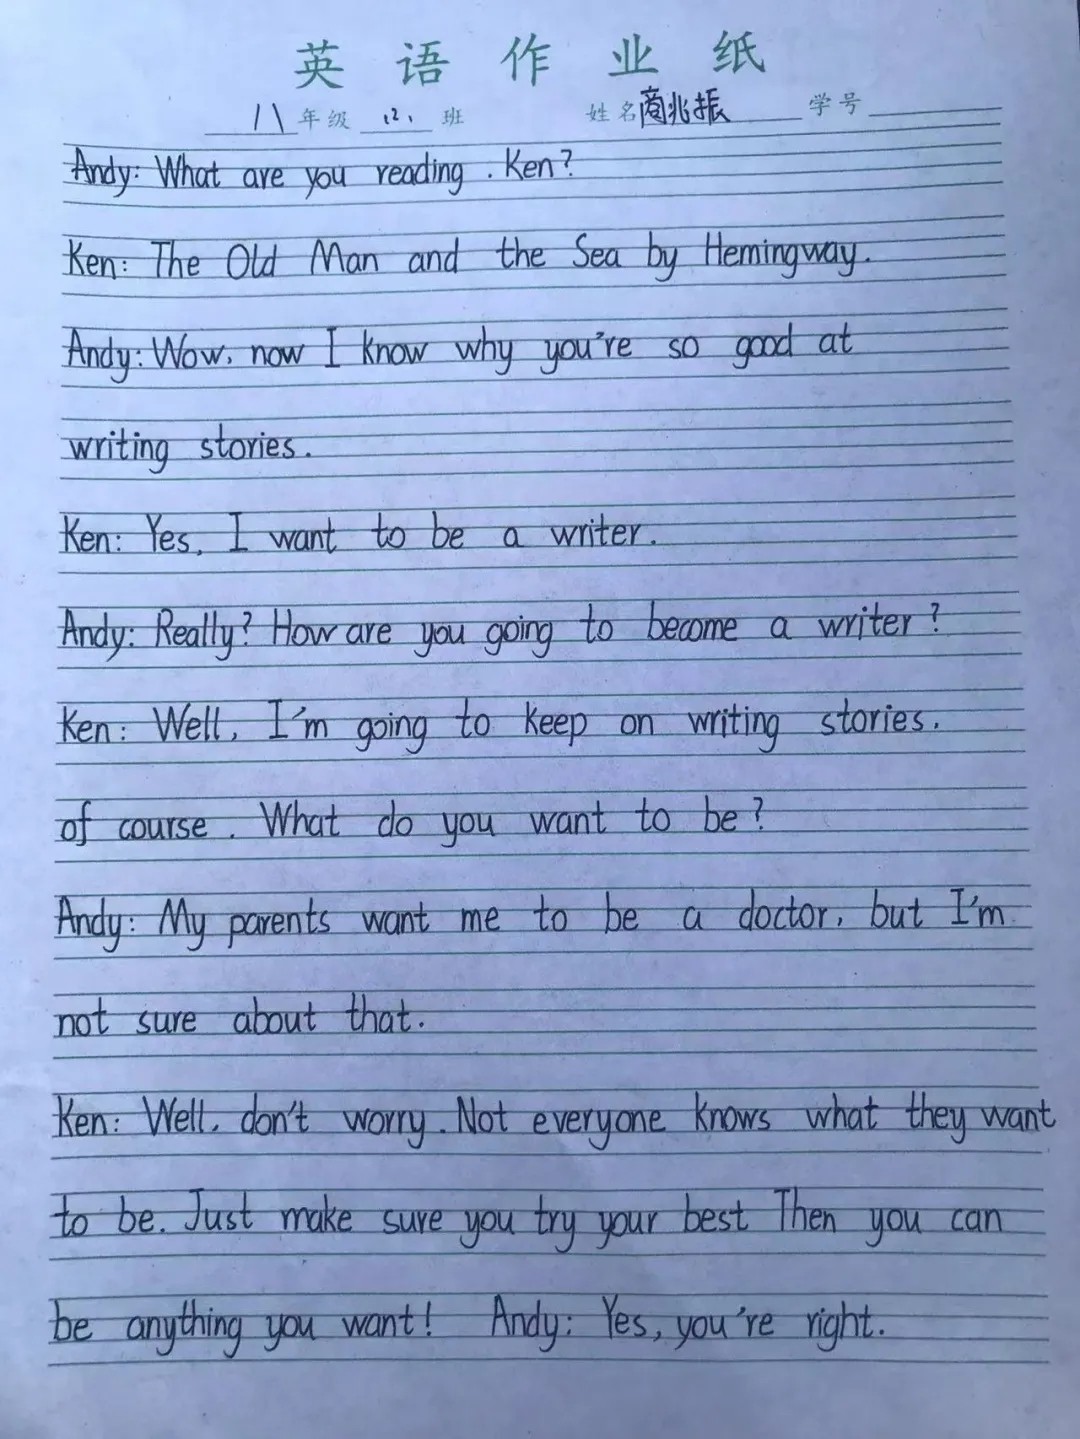 英语作业纸
八年级 (2) 班 姓名商兆振 学号
Andy: What are you reading . Ken?
Ken: The Old Man and the Sea by Hemingway.
Andy: Wow, now I know why you're so good at
writing stories.
Ken: Yes, I want to be a writer.
Andy: Really? How are you going to become a writer?
Ken: Well, I'm going to keep on writing stories.
of course. What do you want to be?
Andy: My parents want me to be a doctor, but I'm
not sure about that.
Ken: Well, don't worry. Not everyone knows what they want
to be. Just make sure you try your best Then you can
be anything you want! Andy: Yes, you're right.